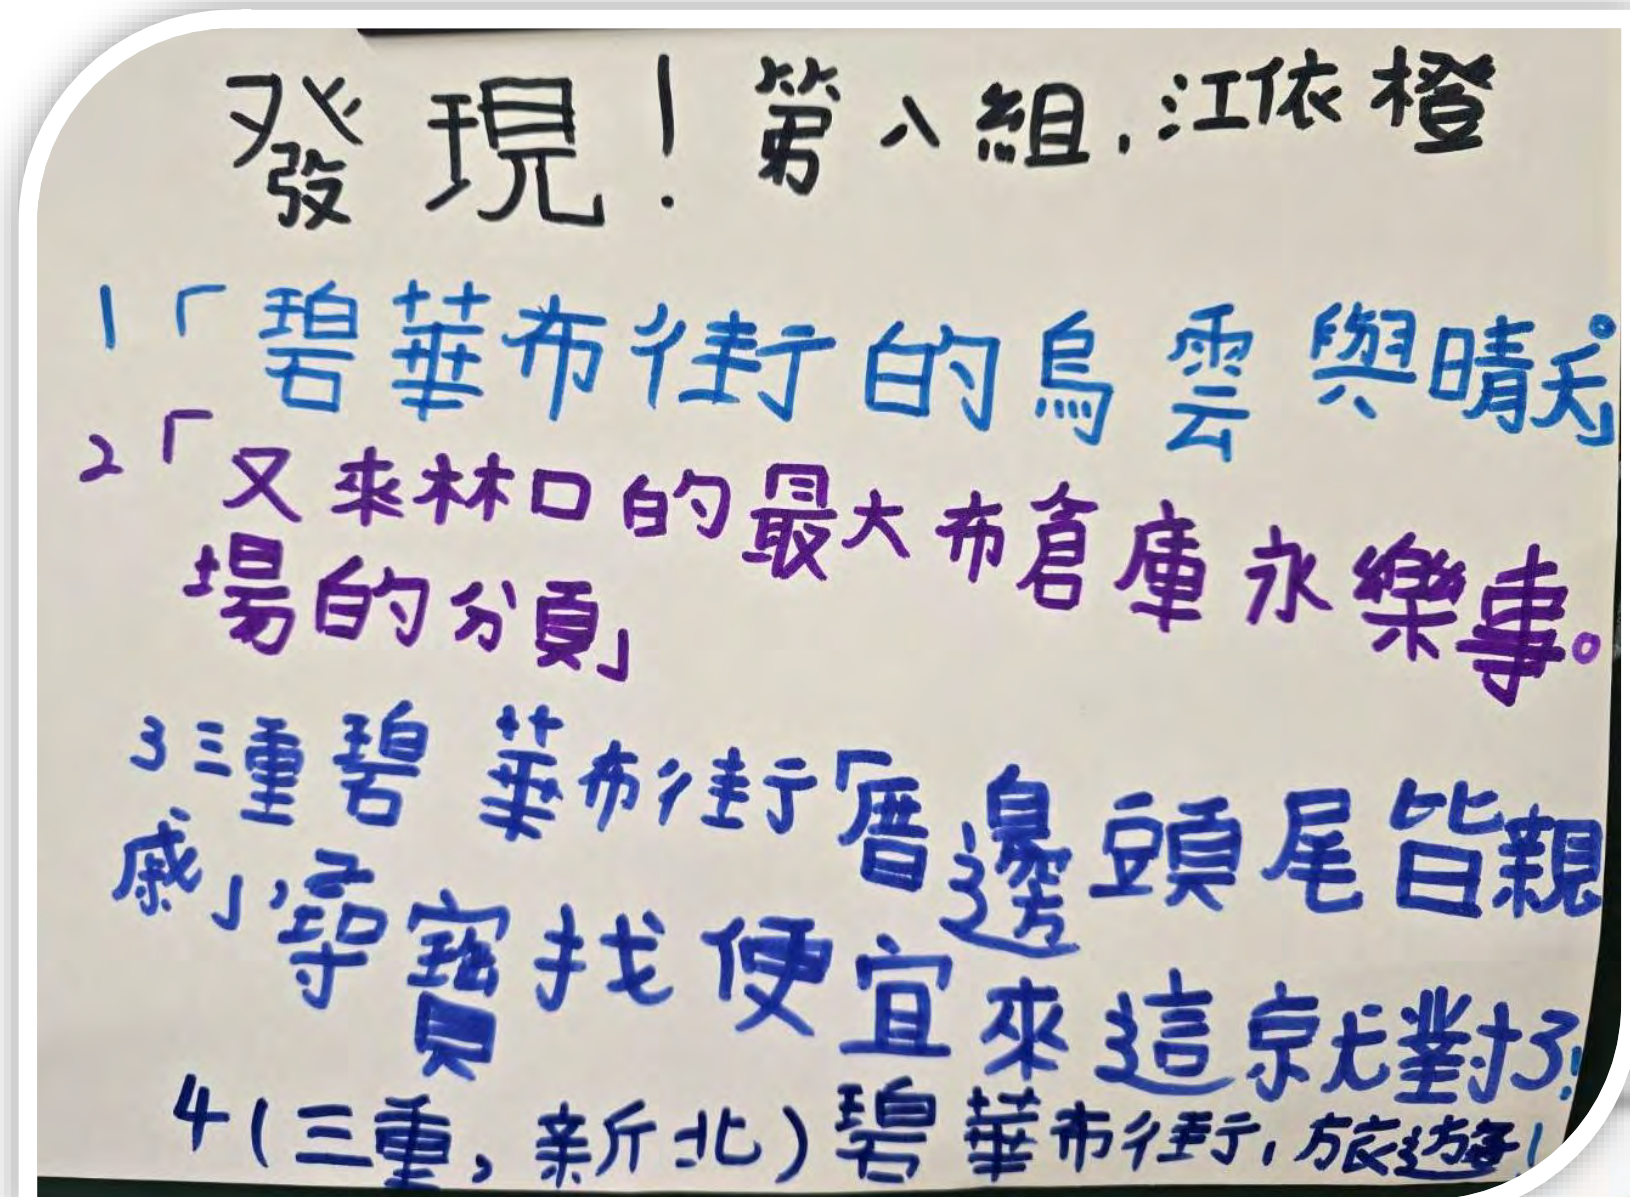 發現！第八組,江依橙
1「碧華布街的烏雲與晴天」。
2「又來林口的最大布倉庫永樂事。
場的分頁」
3三重碧華布街「厝邊頭尾皆親
戚」,尋寶找便宜來這就對了!
4(三重,新北)碧華布街,旅遊!